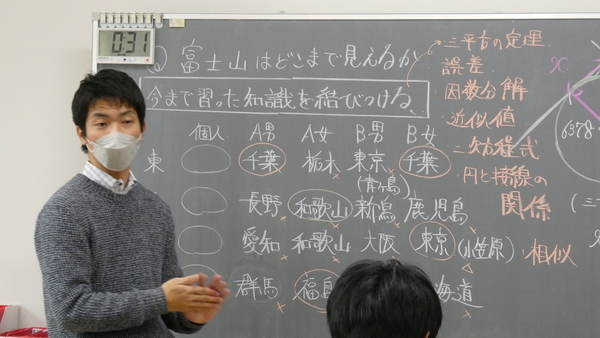 0:31
富士山はどこまで見えるか
今まで習った知識を結びつける
個人 A男 A女 B男 B女
東 千葉 栃木 東京 千葉
(青ヶ島)
長野 和歌山 新潟 鹿児島
愛知 和歌山 大阪 東京(小笠原)
群馬 福島 海道
三平方の定理
誤差
因数分解
近似値
二次方程式
円と接線の
関係
相似
x
6378
(三